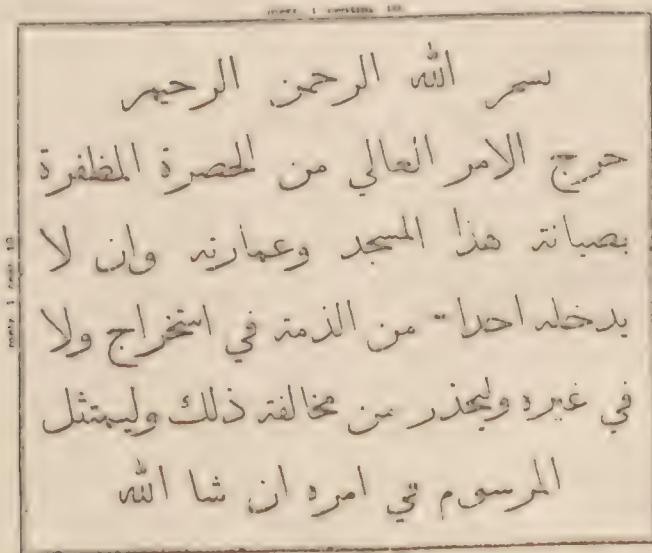 metz 1 centims 10
بسم الله الرحمن الرحيم
خرج الامر العالي من الحضرة المظفرة
بصيانة هذا المسجد وعمارته وان لا
يدخله احدا من الذمة في استخراج ولا
في غيره وليحذر من مخالفة ذلك وليمتثل
المرسوم في امره ان شا الله